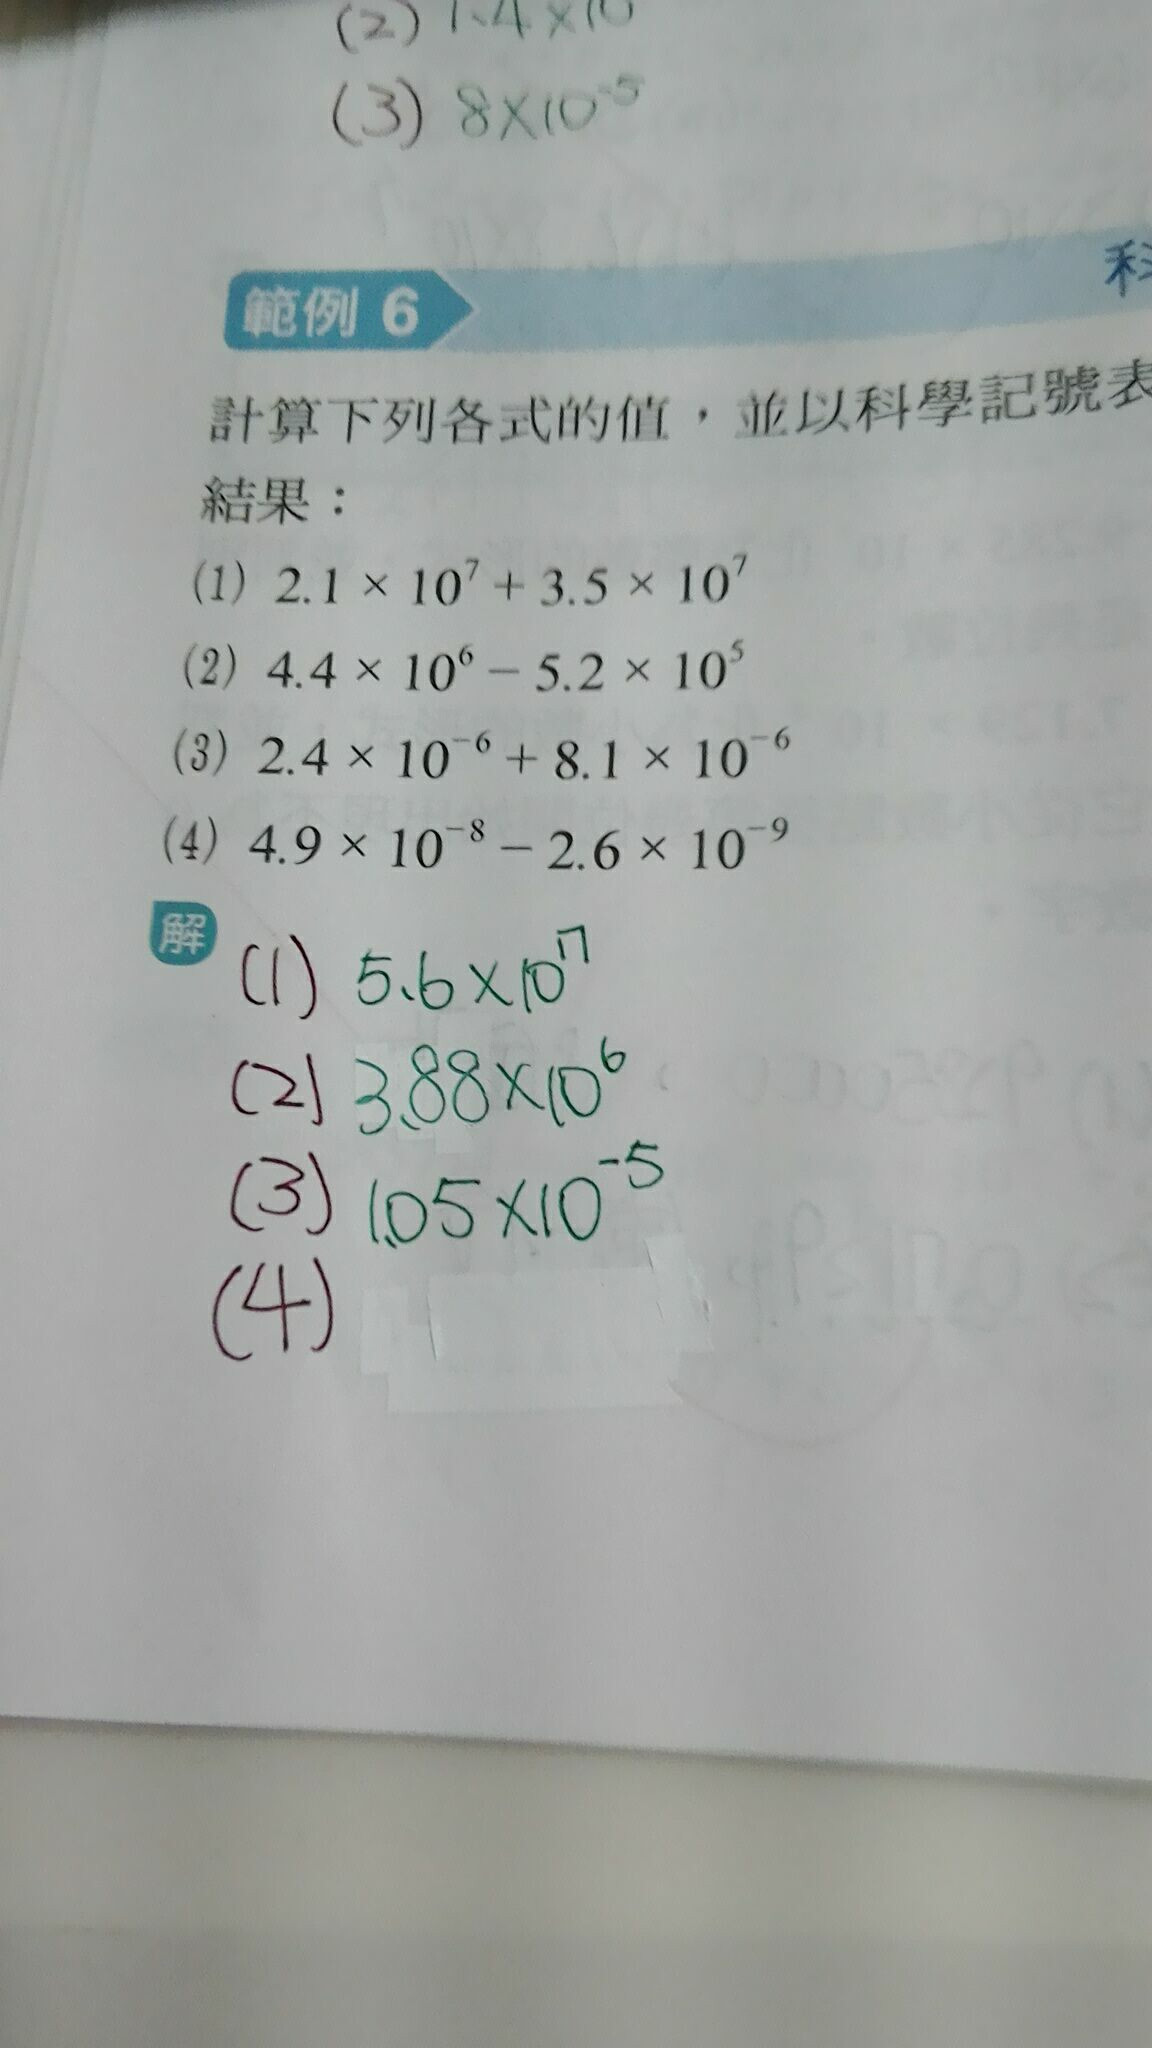 (2) 1.4×10
(3) 8×10⁻⁵
範例 6
科
計算下列各式的值，並以科學記號表
結果：
(1) 2.1 × 10⁷ + 3.5 × 10⁷
(2) 4.4 × 10⁶ − 5.2 × 10⁵
(3) 2.4 × 10⁻⁶ + 8.1 × 10⁻⁶
(4) 4.9 × 10⁻⁸ − 2.6 × 10⁻⁹
解
(1) 5.6×10⁷
(2) 3.88×10⁶
(3) 1.05×10⁻⁵
(4)